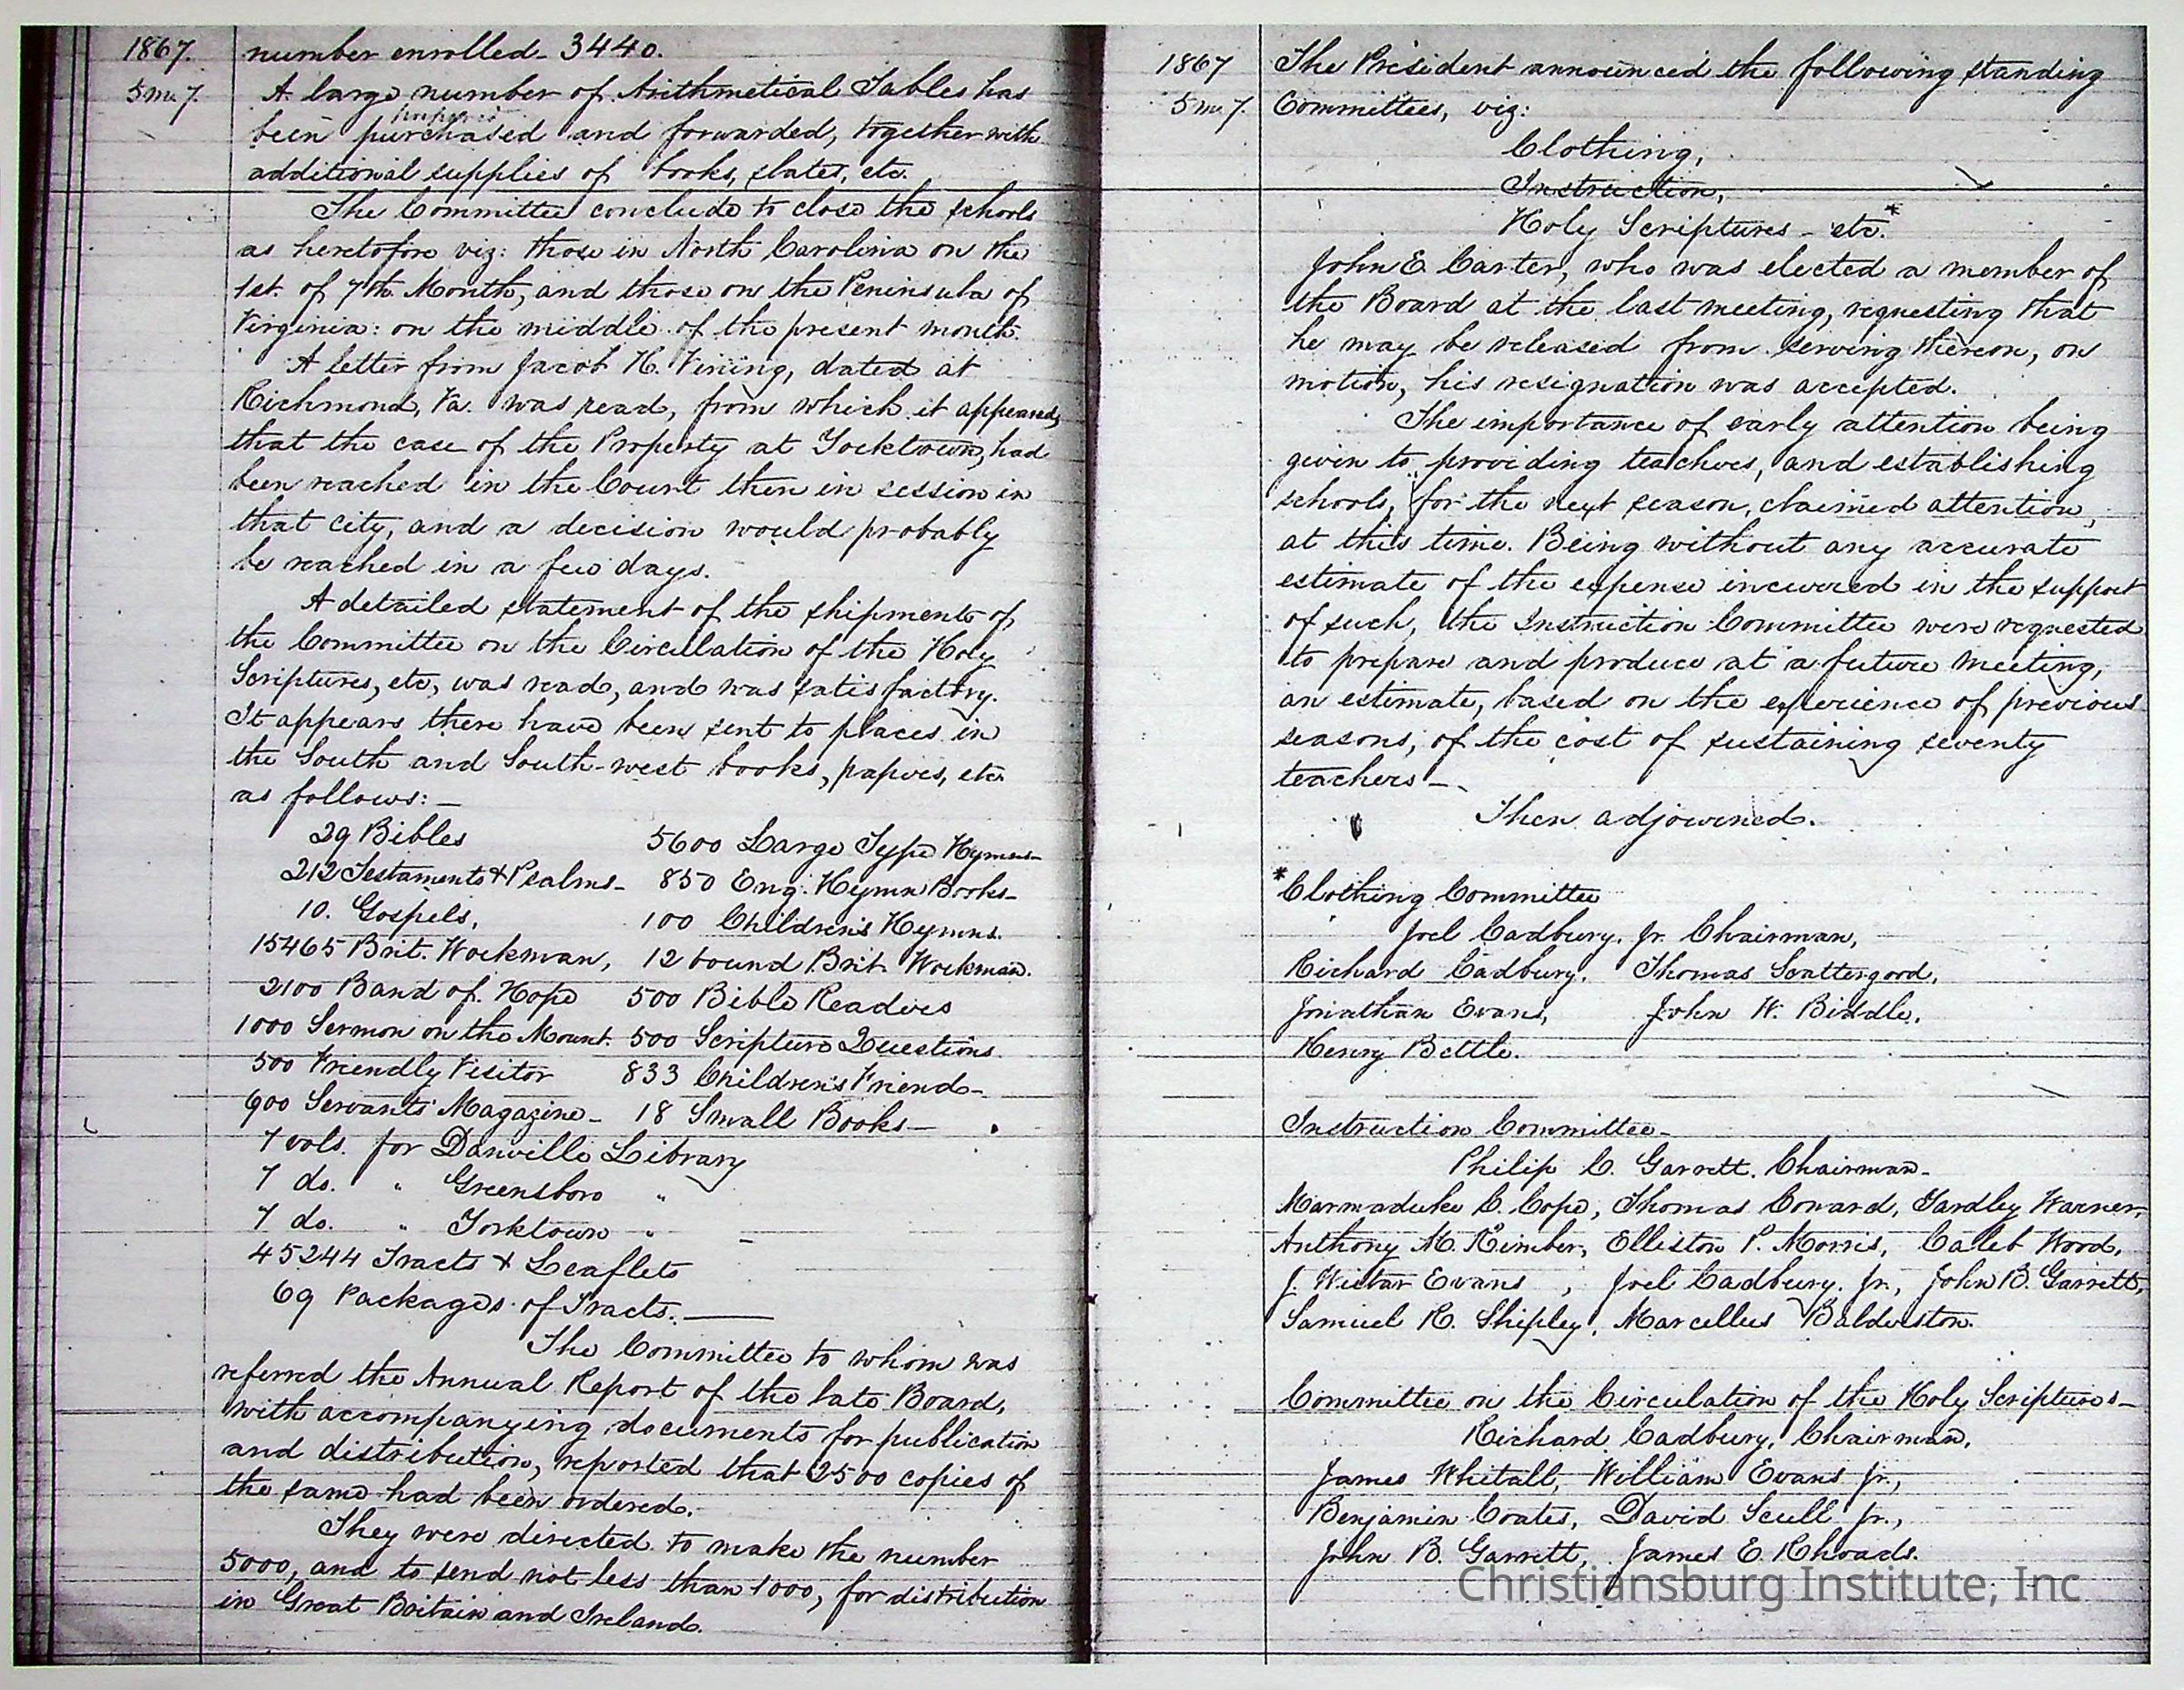 1867.
5 mo 7.
number enrolled - 3440.
A large number of Arithmetical Tables has
prepared
been purchased and forwarded, together with
additional supplies of books, slates, etc.
The Committee conclude to close the schools
as heretofore viz: those in North Carolina on the
1st. of 7th. Month, and those on the Peninsula of
Virginia: on the middle of the present month.
A letter from Jacob H. Vining, dated at
Richmond, Va. was read, from which it appeared,
that the case of the Property at Yorktown, had
been reached in the Court then in session in
that city, and a decision would probably
be reached in a few days.
A detailed statement of the shipments of
the Committee on the Circulation of the Holy
Scriptures, etc, was read, and was satisfactory.
It appears there have been sent to places in
the South and South-west books, papers, etc
as follows: -
29 Bibles 5600 Large Type Hymns -
212 Testaments & Psalms - 850 Eng. Hymn Books -
10. Gospels, 100 Children's Hymns.
15465 Brit. Workman, 12 bound Brit. Workman.
2100 Band of Hope 500 Bible Readers
1000 Sermon on the Mount. 500 Scripture Questions
500 Friendly Visitor 833 Children's Friend -
600 Servants' Magazine - 18 Small Books -
7 vols. for Danville Library
7 do. " Greensboro "
7 do. " Yorktown "
45244 Tracts & Leaflets
69 Packages of Tracts.
The Committee to whom was
referred the Annual Report of the late Board,
with accompanying documents for publication
and distribution, reported that 2500 copies of
the same had been ordered.
They were directed to make the number
5000, and to send not less than 1000, for distribution
in Great Britain and Ireland.
1867
5 mo 7.
The President announced the following standing
Committees, viz:
Clothing,
Instruction,
Holy Scriptures - etc.*
John E. Carter, who was elected a member of
the Board at the last meeting, requesting that
he may be released from serving thereon, on
motion, his resignation was accepted.
The importance of early attention being
given to providing teachers, and establishing
schools, for the next season, claimed attention,
at this time. Being without any accurate
estimate of the expense incurred in the support
of such, the Instruction Committee were requested
to prepare and produce at a future meeting,
an estimate, based on the experience of previous
seasons, of the cost of sustaining seventy
teachers -
Then adjourned.
*Clothing Committee
Joel Cadbury, Jr. Chairman,
Richard Cadbury, Thomas Scattergood,
Jonathan Evans, John W. Biddle,
Henry Bettle.
Instruction Committee -
Philip C. Garrett. Chairman -
Marmaduke C. Cope, Thomas Conard, Yardley Warner,
Anthony M. Kimber, Elliston P. Morris, Caleb Wood,
J. Wistar Evans, Joel Cadbury, Jr., John B. Garrett,
Samuel R. Shipley, Marcellus Balderston.
Committee on the Circulation of the Holy Scriptures -
Richard Cadbury, Chairman,
James Whitall, William Evans Jr.,
Benjamin Coates, David Scull Jr.,
John B. Garrett, James E. Rhoads.
Christiansburg Institute, Inc